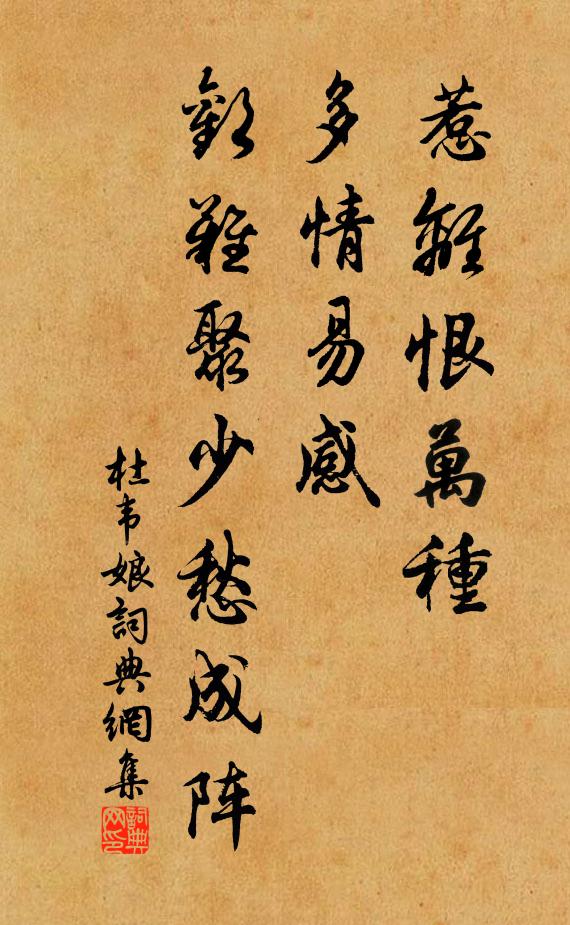 惹離恨萬種
多情易感
歡難聚少愁成阵
杜韦娘詞典網集
詞典网印